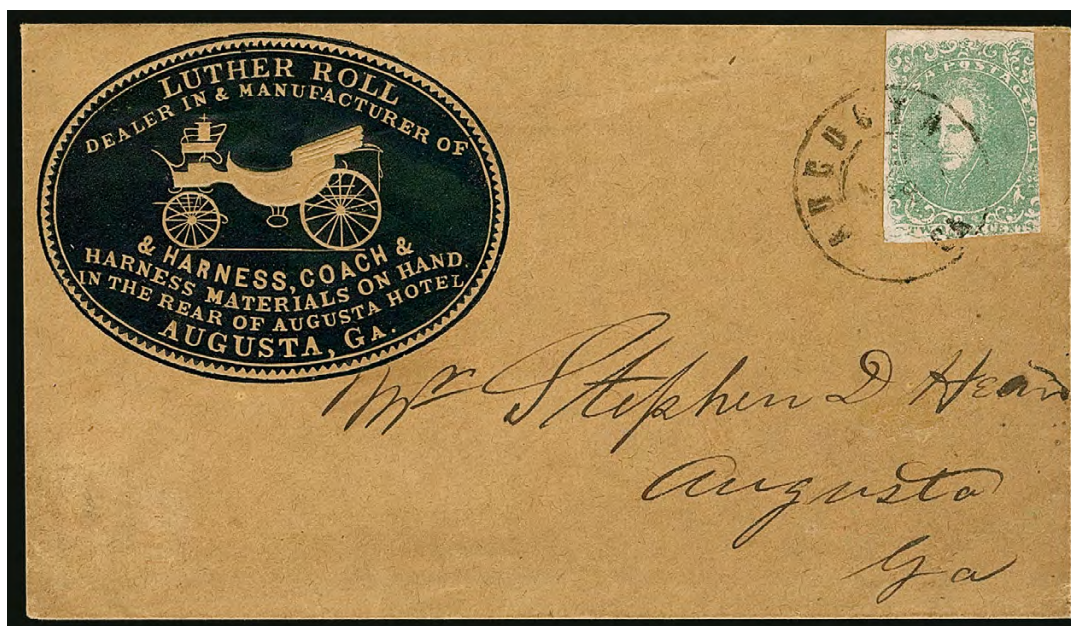 LUTHER ROLL
DEALER IN & MANUFACTURER OF
& HARNESS, COACH &
HARNESS MATERIALS ON HAND.
IN THE REAR OF AUGUSTA HOTEL
AUGUSTA, GA.
AUGUSTA
GA
TWO CENTS
Mr Stephen D Heard
Augusta
Ga